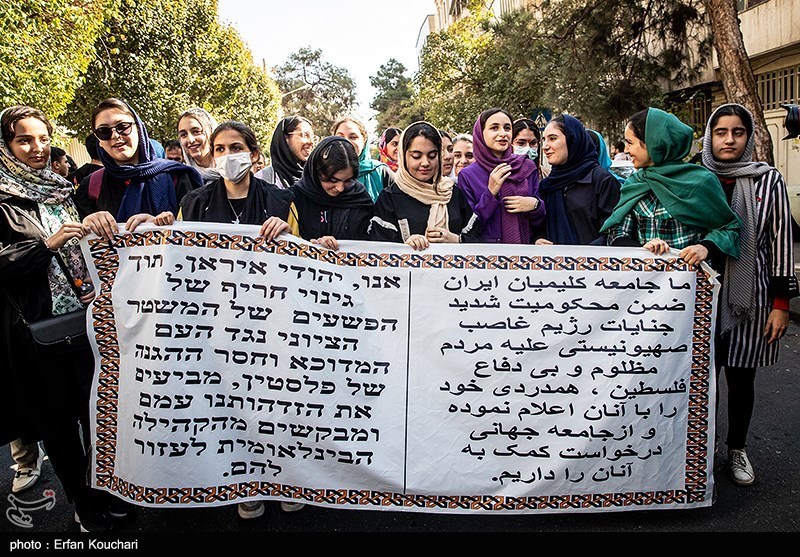 ما جامعه کلیمیان ایران
ضمن محکومیت شدید
جنایات رژیم غاصب
صهیونیستی علیه مردم
مظلوم و بی دفاع
فلسطین ، همدردی خود
را با آنان اعلام نموده
و ازجامعه جهانی
درخواست کمک به
آنان را داریم.
אנו, יהודי איראן, תוך
גינוי חריף של
הפשעים של המשטר
הציוני נגד העם
המדוכא וחסר ההגנה
של פלסטין, מביעים
את הזדהותנו עמם
ומבקשים מהקהילה
הבינלאומית לעזור
להם.
photo : Erfan Kouchari